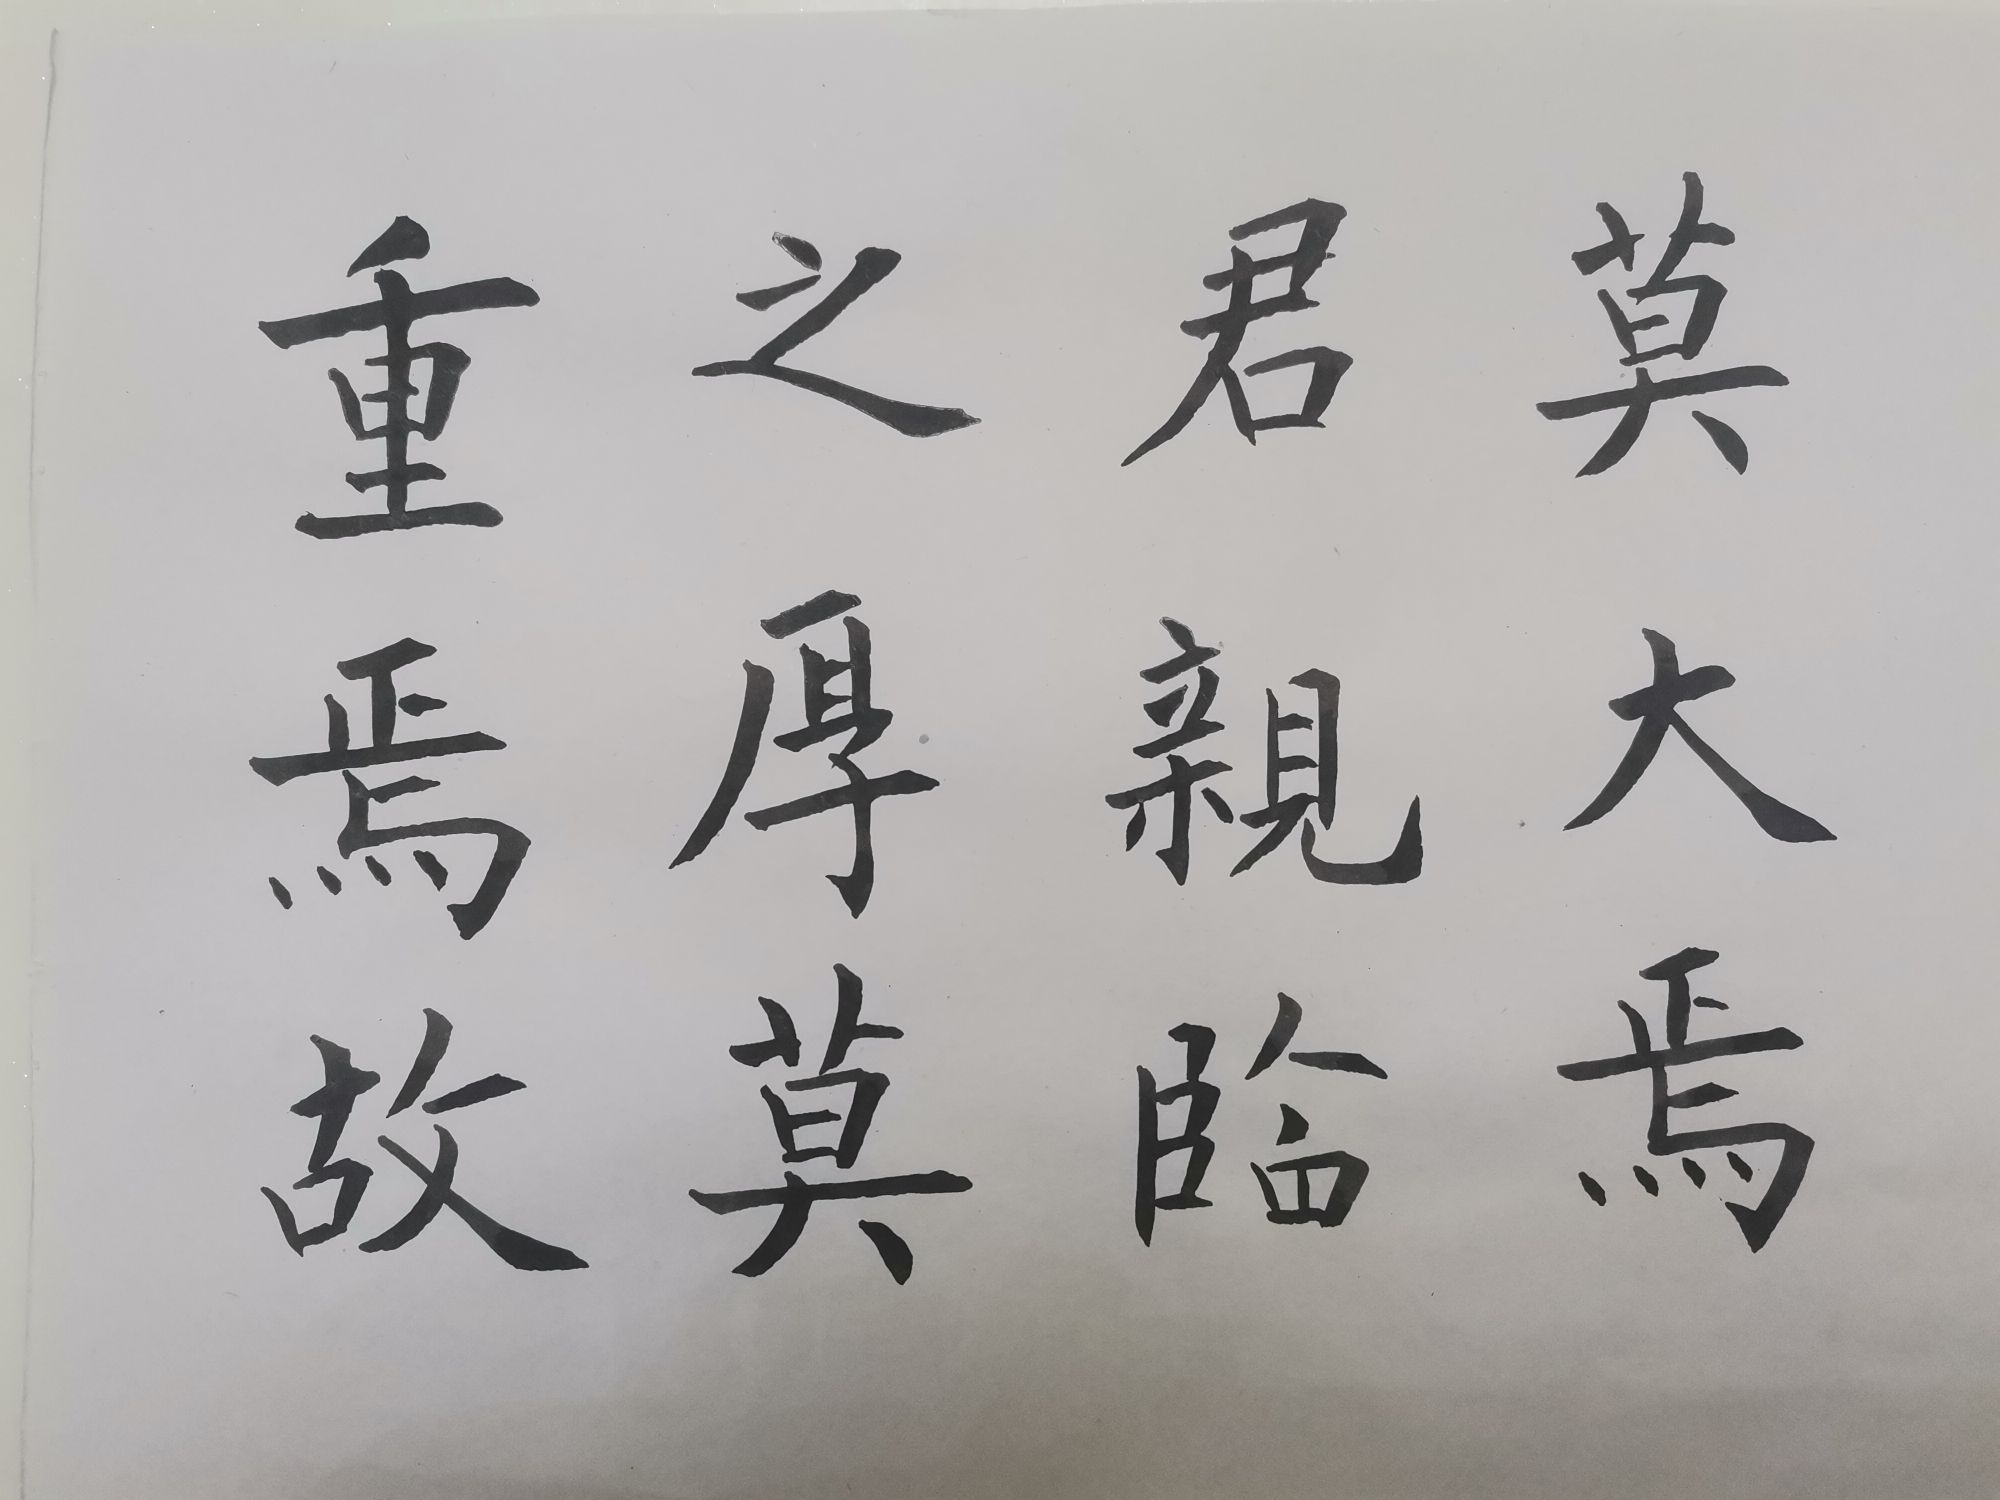 莫大焉
君親臨
之厚莫
重焉故